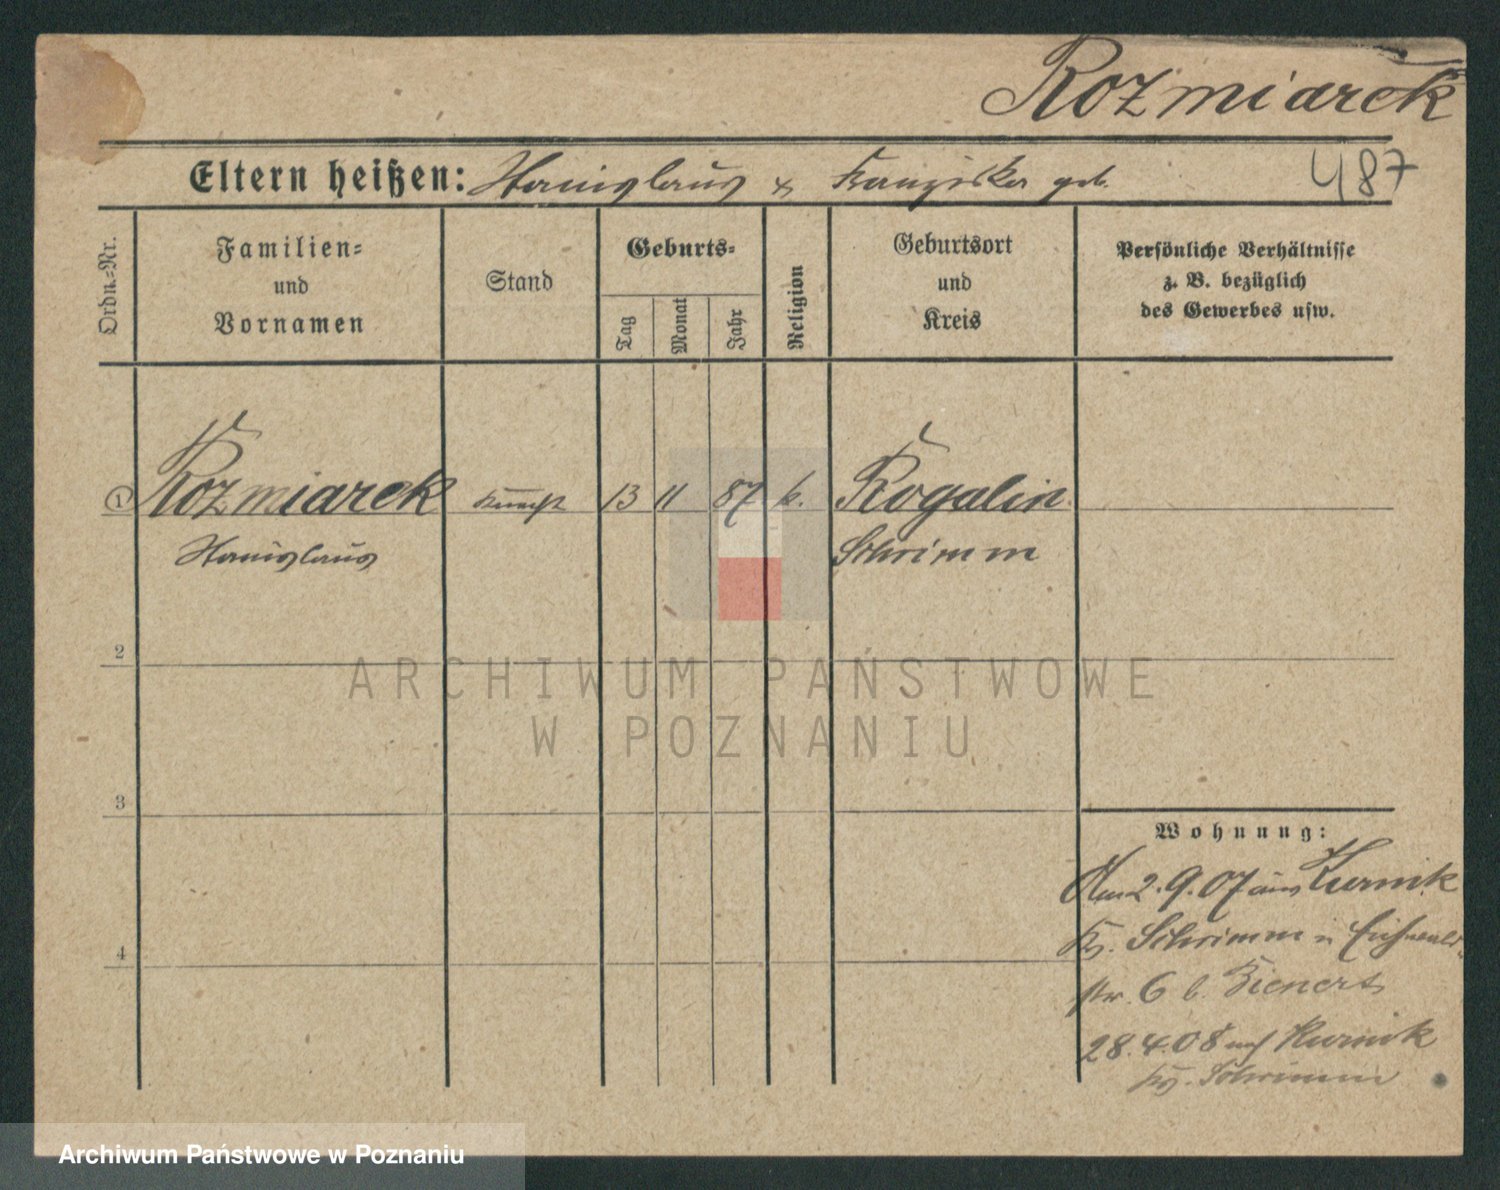 Rozmiarek
Eltern heißen: Stanislaus & Franziska geb.
487
Ordn.-Nr.
Familien-
und
Vornamen
Stand
Geburts-
Tag
Monat
Jahr
Religion
Geburtsort
und
Kreis
Persönliche Verhältnisse
z. B. bezüglich
des Gewerbes usw.
1 Rozmiarek Knecht 13 11 87 k. Rogalin
Stanislaus Schrimm
2
ARCHIWUM PAŃSTWOWE
W POZNANIU
3
Wohnung:
Am 2.9.07 aus Kurnik
Kr. Schrimm n Eichwald-
str. 6 b. Bienert
4
28.4.08 nach Kurnik
Kr. Schrimm
Archiwum Państwowe w Poznaniu